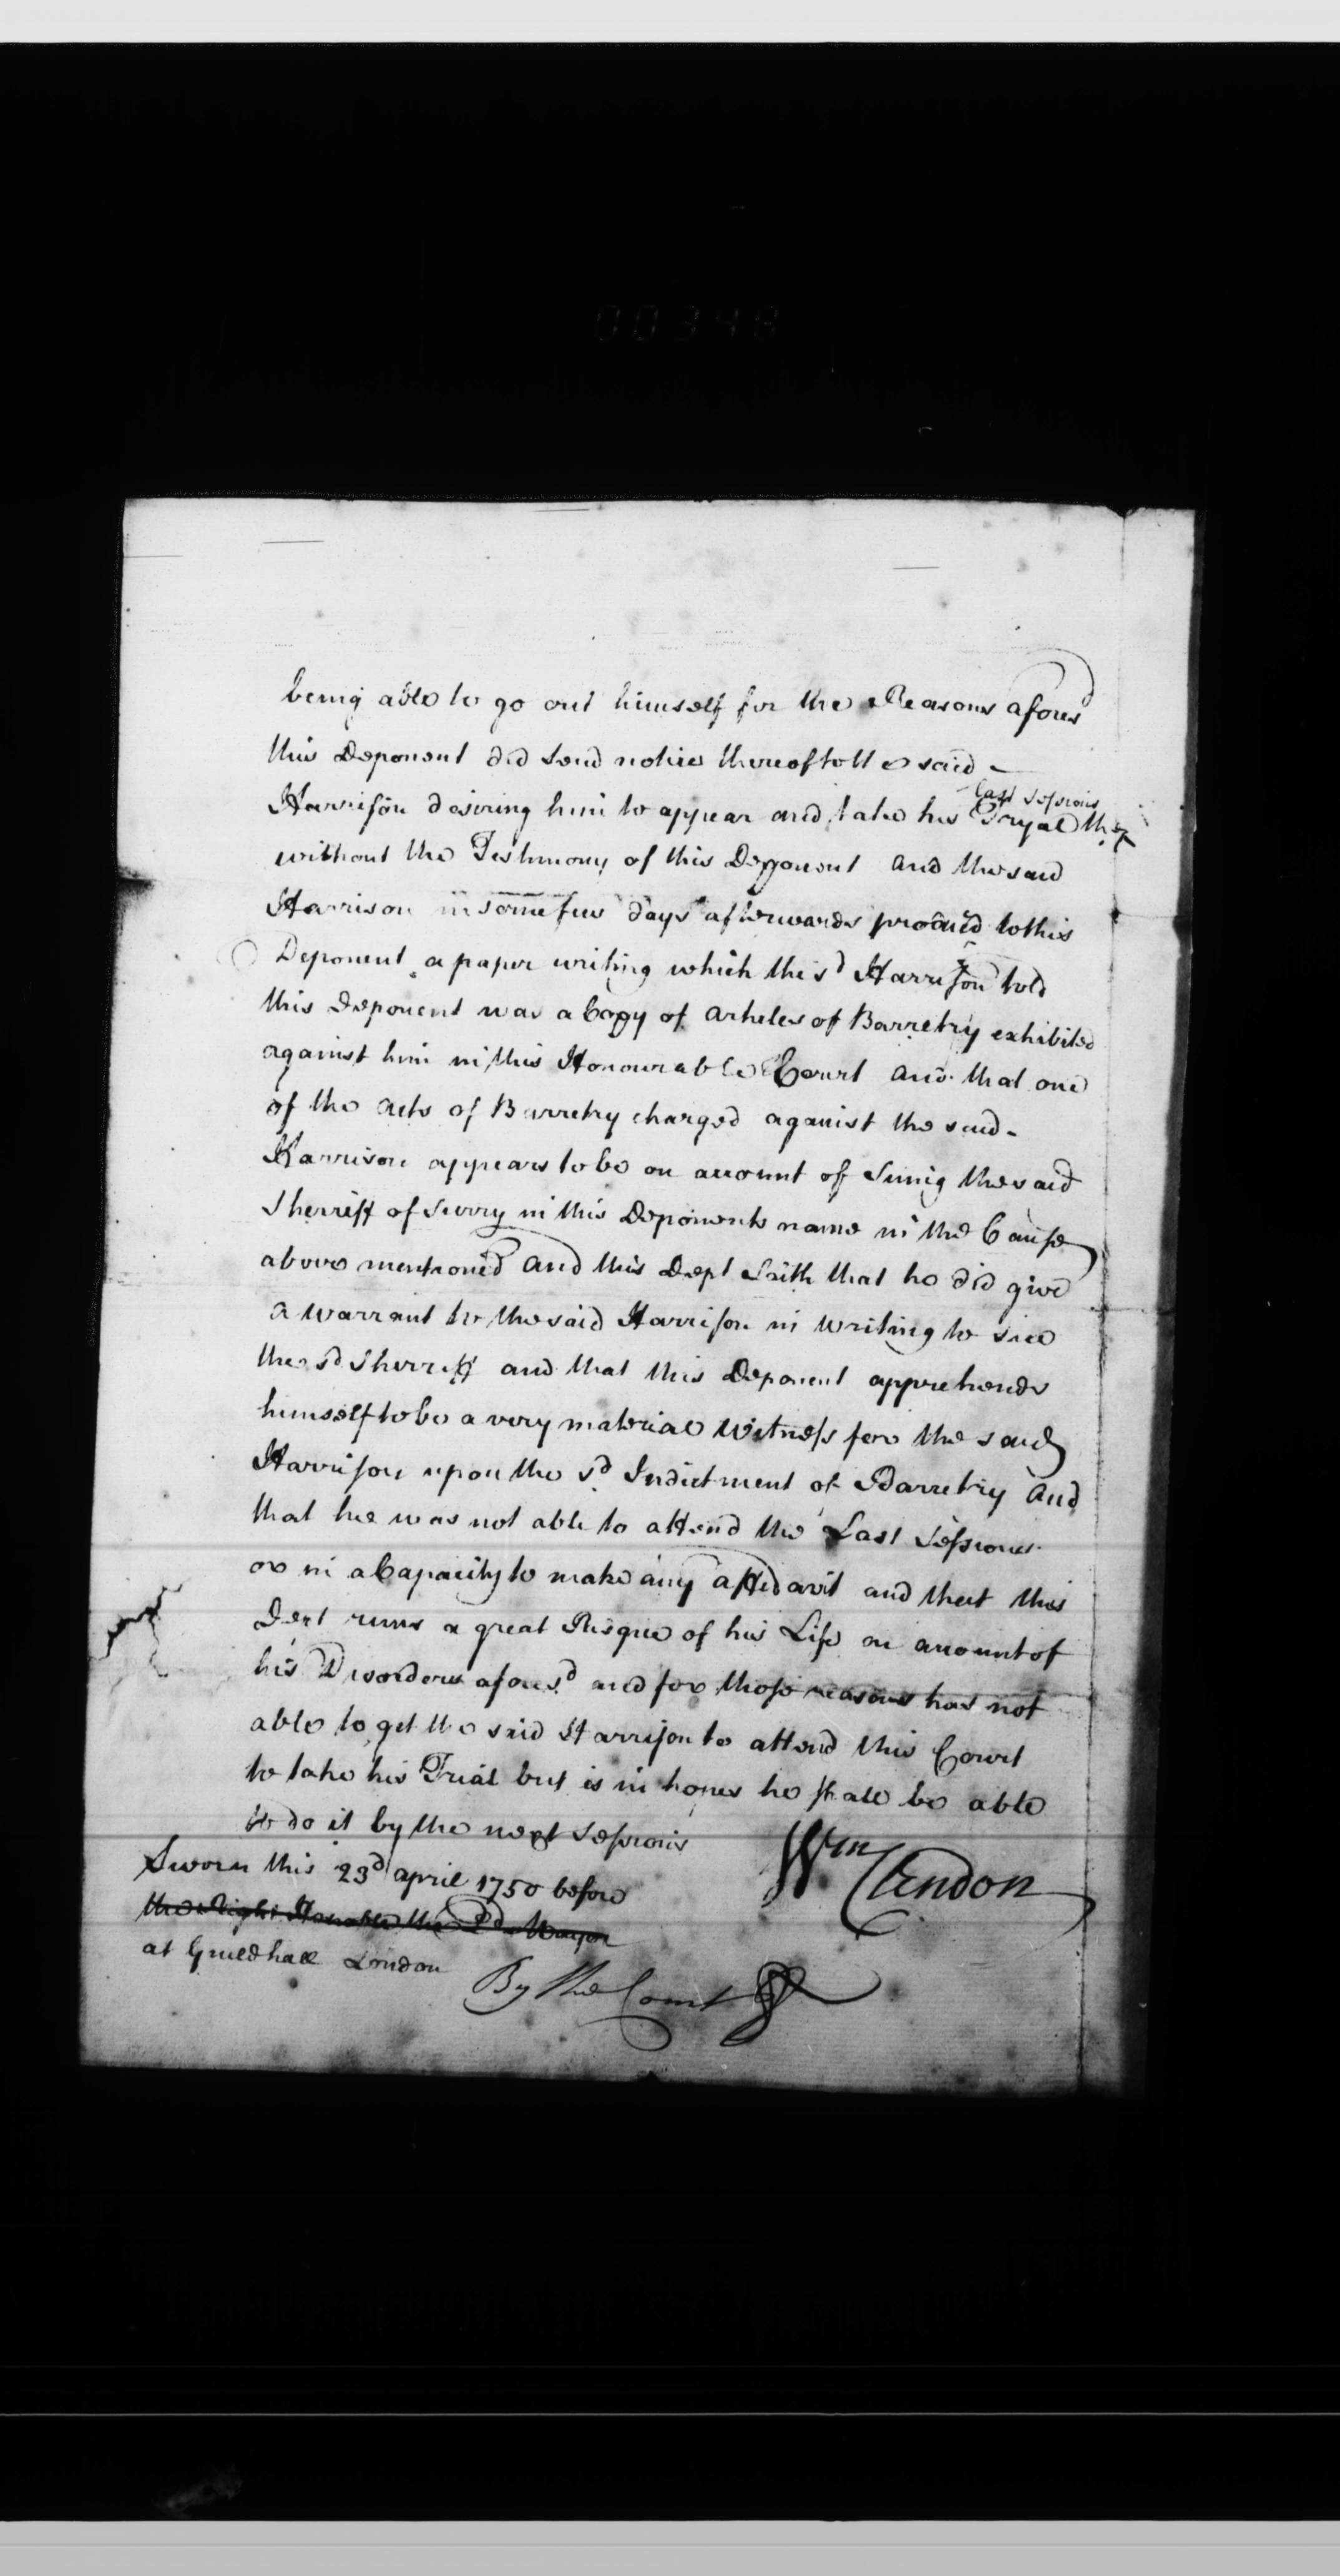 00348
being able to go out himself for the Reasons afores^d
this Deponent did send notice thereof to the said
Harrison desiring him to appear and take his Tryal the
last Sessions
without the Testimony of this Deponent and the said
Harrison in some few days afterwards produced to this
Deponent a paper writing which the s^d Harrison told
this Deponent was a Copy of Articles of Barretry exhibited
against him in this Honourable Court and that one
of the Acts of Barretry charged against the said
Harrison appears to be on account of Suing the said
Sherriff of Surry in this Deponents name in the Cause
above mentioned and this Dept Saith that he did give
a warrant to the said Harrison in writing to sue
the s^d Sherriff and that this Deponent apprehends
himself to be a very material Witness for the said
Harrison upon the s^d Indictment of Barretry and
that he was not able to attend the Last Sessions
or in a Capacity to make any affidavit and that this
Dept runs a great Risque of his Life on account of
his Disorders afores^d and for those reasons has not
able to get the said Harrison to attend this Court
to take his Trial but is in hopes he shall be able
to do it by the next Sessions
Sworn this 23^d april 1750 before
the Right Honoble the L^d Mayor
at Guildhall London
W^m Clendon
By the Court